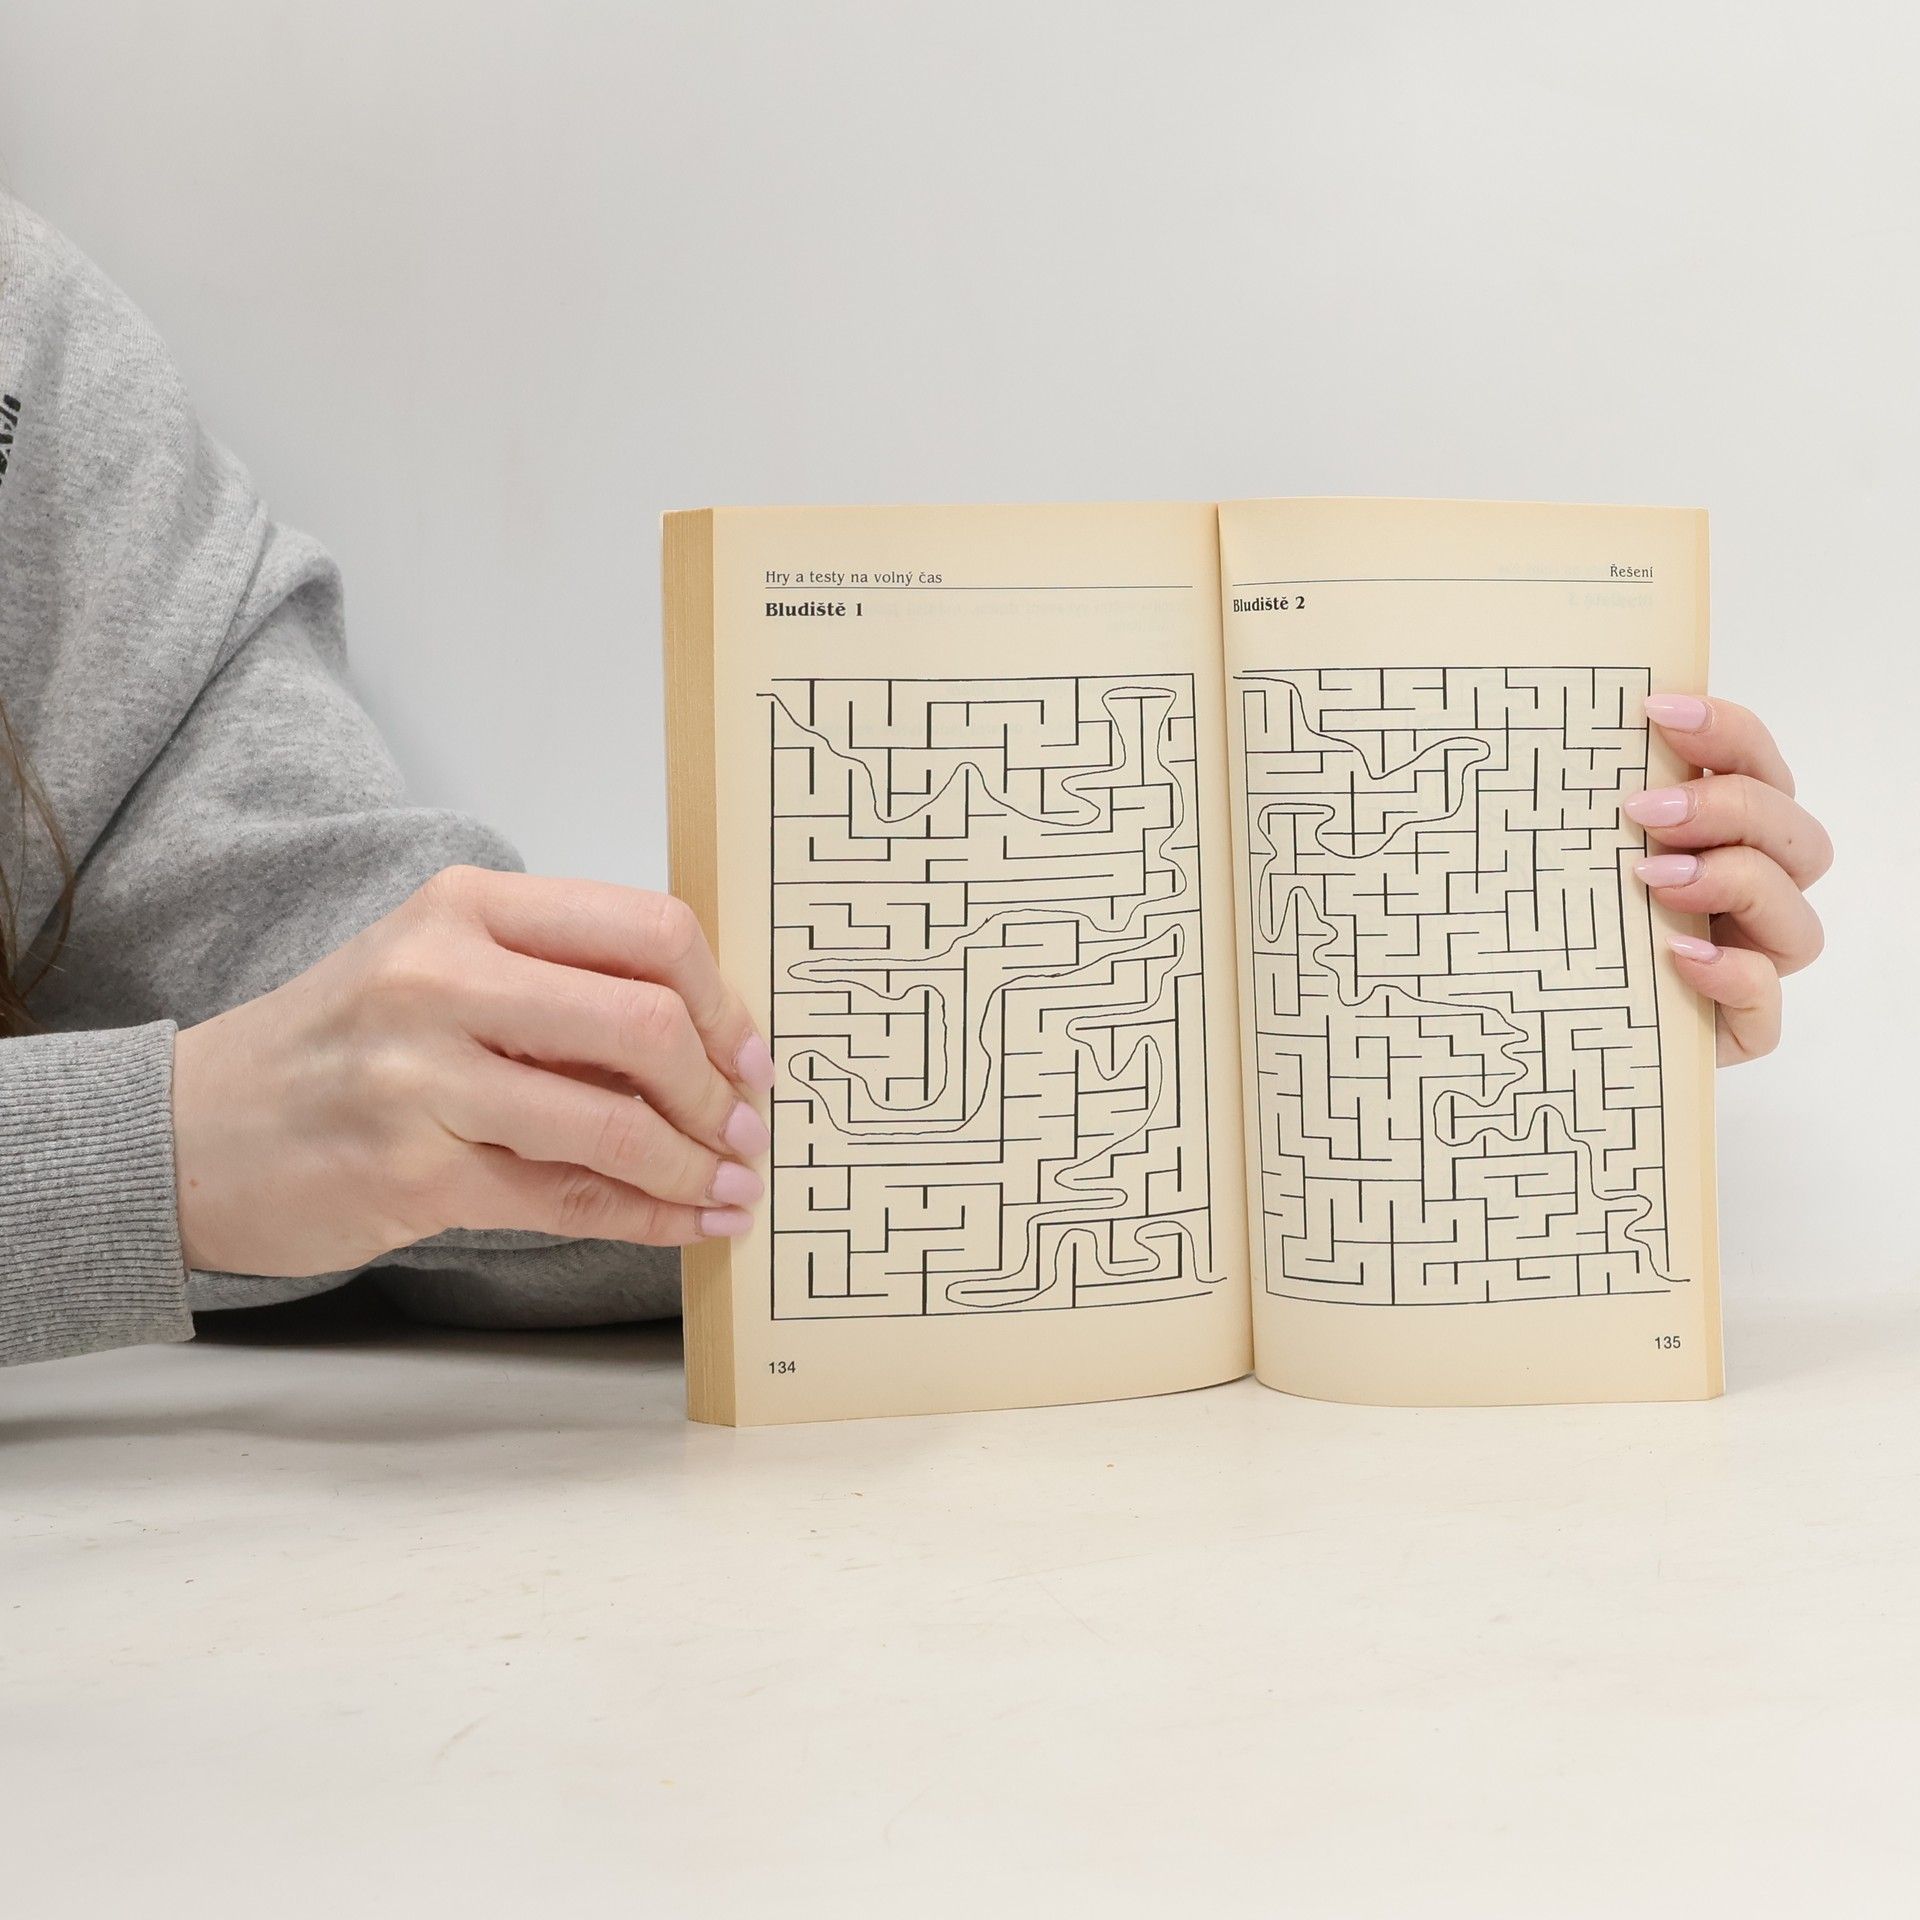 Hry a testy na volný čas
Bludiště 1
134
Řešení
Bludiště 2
135